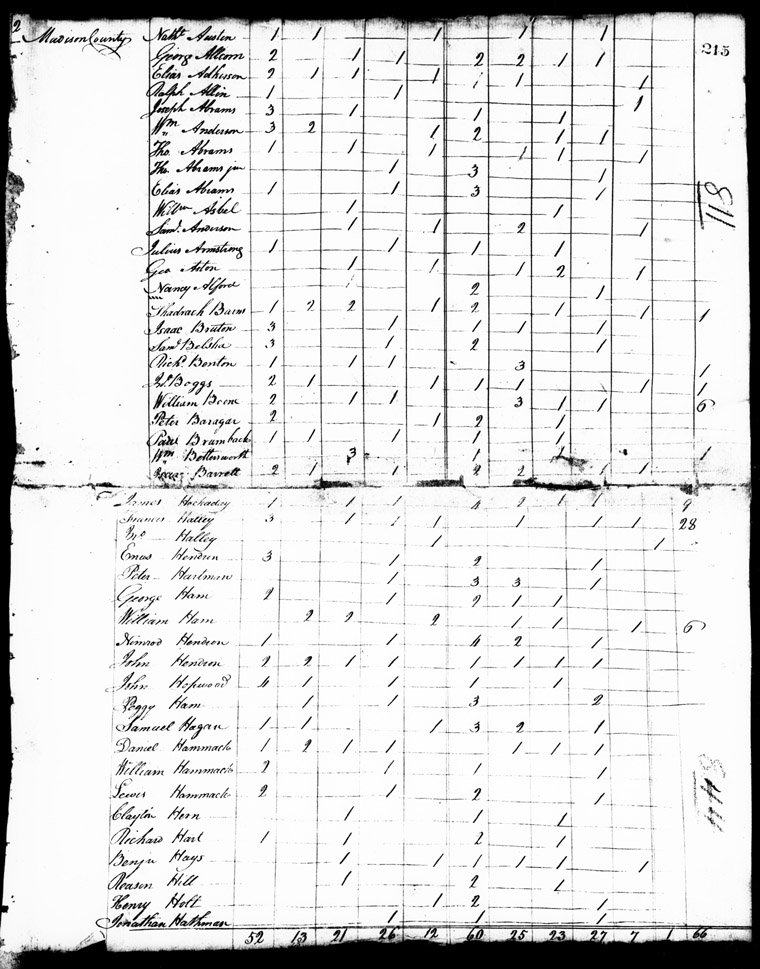 2
Madison County
215
Nathl. Austen 1 1 1 1 1
George Allcorn 2 1 1 2 2 1 1
Elias Adkisson 2 1 1 1 1 1 1
Ralph Allin 1 1 1
Joseph Abrams 3 1 1 1
Wm Anderson 3 2 1 2 1 1
Tho. Abrams 1 1 1 1 1 1
Tho. Abrams jun 1 3 1
Elias Abrams 1 1 3 1
Willm Asbel 1 1
Saml. Anderson 1 1 2 1
118
Julius Armstrong 1 1 1 1
Geo Aston 1 1 1 2 1
Nancy Alford 2 1
Shadrach Barns 1 2 2 1 2 1 1 1
Isaac Bruton 3 1 1 1 1
Saml Belsha 3 1 2 1
Richd. Benton 1 1 1 3 1
Boggs 2 1 1 1 1 1 1
William Boone 2 1 1 3 1 1 6
Peter Baragar 2 1 2 1
Paul Brumback 1 1 1 1 1
Wm Bottersworth 3 1 1 1
Barrett 2 1 1 2 2 1 1
James Hockaday 1 1 1 4 2 1 1 9
Francis Halley 3 1 1 1 1 1 1 28
Jno Halley 1 1
Enus Hendren 3 1 2 1
Peter Hartman 1 3 3 1
George Ham 2 1 2 1 1
William Ham 2 2 2 1 1 1 6
Nimrod Hendson 1 1 4 2 1
John Hendson 2 2 1 1 1 1 1 1
John Hopwood 4 1 1 1 1
Peggy Ham 1 1 3 2
Samuel Hagan 1 1 1 3 2 1
Daniel Hammack 1 2 1 1 1 1 1
William Hammack 2 1 1 1
Lewis Hammack 2 1 2 1
Clayton Hern 1 1 1
Richard Hart 1 1 2 1
Benja Hays 1 1 1 1 1 1
Reason Hill 1 2 1
Henry Holt 1 2 1
Jonathan Hathman 1 1 1
52 13 21 26 12 60 25 23 27 7 1 66